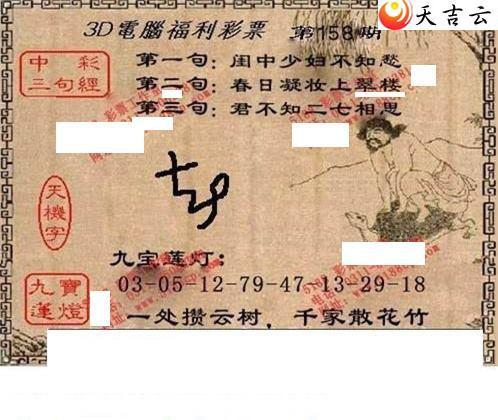 天吉云
3D電腦福利彩票 第158期
中彩
三句經
第一句：闺中少妇不知愁
第二句：春日凝妆上翠楼
第三句：君不知二七相思
天機字
九宝莲灯：
九寶
蓮燈
03-05-12-79-47-13-29-18
一处攒云树，千家散花竹